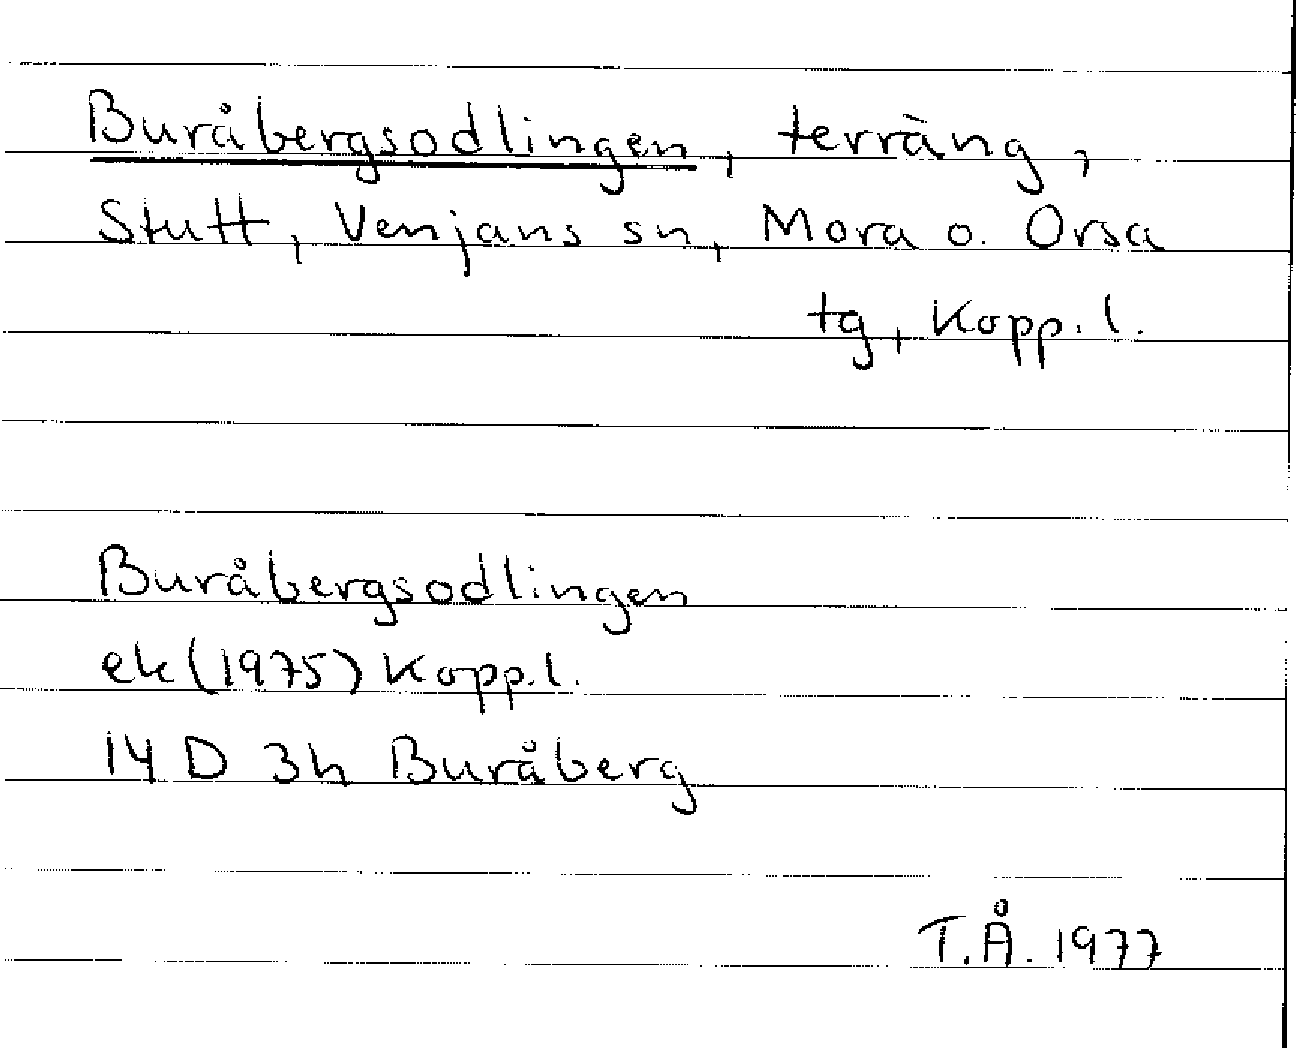 Buråbergsodlingen, terräng,
Stutt, Venjans sn, Mora o. Orsa
tg, Kopp. l.
Buråbergsodlingen
ek (1975) Kopp. l.
14 D 3h Buråberg
T.Å. 1977